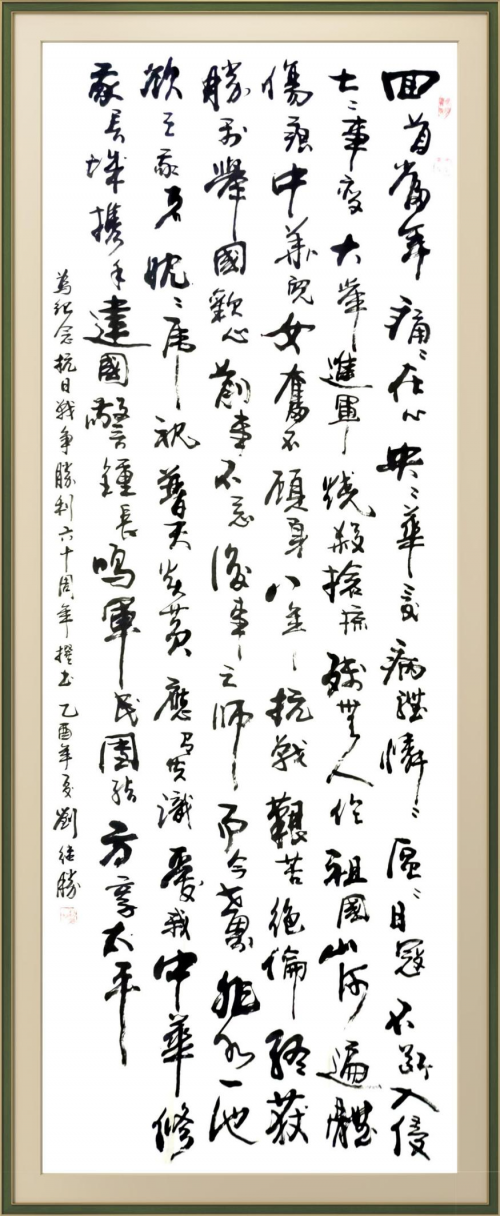 回首當年痛〻在心泱〻華夏病體憐〻區〻日寇不斷入侵
七〻事变大举進軍燒殺搶掠殘無人伦祖國山河遍體
傷痕中華兒女奮不顧身八年抗戰艱苦絕倫終获
勝利舉國歡心前事不忘後事之師而今世界非水一池
欲亡我者眈〻虎視普天炎黄應有共識愛我中華修
我長城携手建國警鐘長鳴軍民團结方享太平
為纪念抗日戰争勝利六十周年撰书乙酉年夏劉继勝